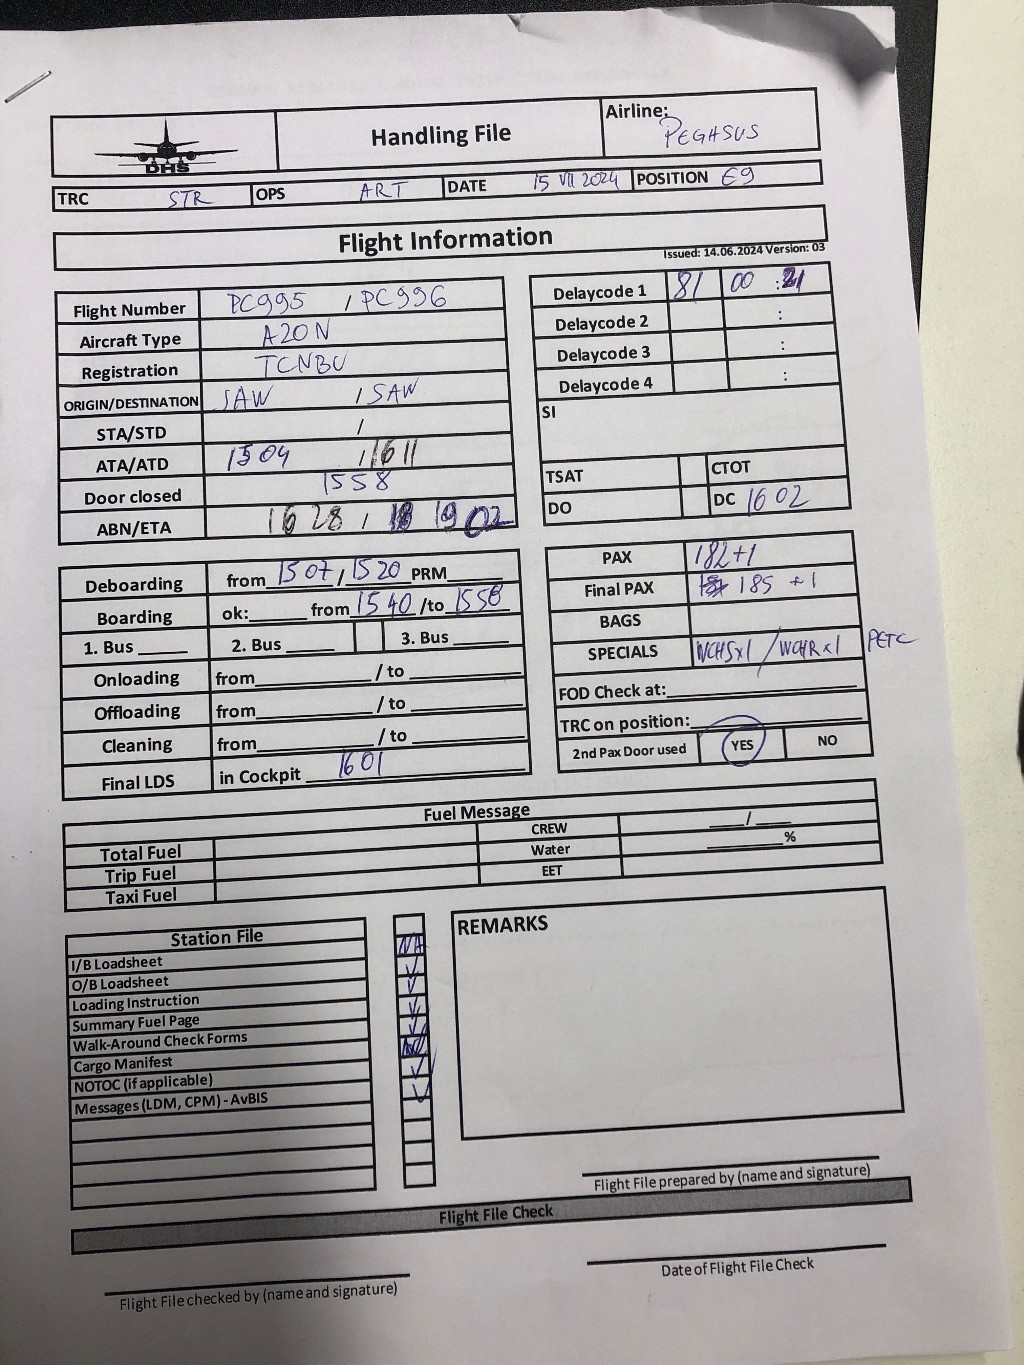 DHS
Handling File
Airline: PEGASUS
TRC STR OPS ART DATE 15 VII 2024 POSITION E9
Flight Information
Issued: 14.06.2024 Version: 03
Flight Number PC995 / PC996
Aircraft Type A20N
Registration TCNBU
ORIGIN/DESTINATION SAW / SAW
STA/STD /
ATA/ATD 1504 / 1611
Door closed 1558
ABN/ETA 1628 / 1902
Delaycode 1 81 00 : 21
Delaycode 2 :
Delaycode 3 :
Delaycode 4 :
SI
TSAT CTOT
DO DC 1602
Deboarding from 1507 / 1520 PRM
Boarding ok: from 1540 /to 1558
1. Bus 2. Bus 3. Bus
Onloading from / to
Offloading from / to
Cleaning from / to
Final LDS in Cockpit 1601
PAX 182+1
Final PAX 185 +1
BAGS
SPECIALS WCHSx1 / WCHRx1 PETC
FOD Check at:
TRC on position:
2nd Pax Door used YES NO
Fuel Message
Total Fuel CREW /
Trip Fuel Water %
Taxi Fuel EET
Station File
NA
I/B Loadsheet
O/B Loadsheet
Loading Instruction
Summary Fuel Page
Walk-Around Check Forms
Cargo Manifest
NOTOC (if applicable)
Messages (LDM, CPM) - AvBIS
REMARKS
Flight File prepared by (name and signature)
Flight File Check
Flight File checked by (name and signature)
Date of Flight File Check